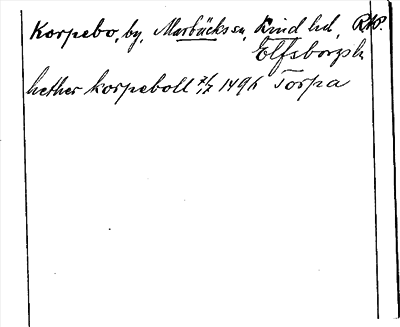 Korpebo, by, Marbäcks sn, Kind hd, RAP.
Elfsborgs l.
hether korpeboll 7/7 1496 Torpa